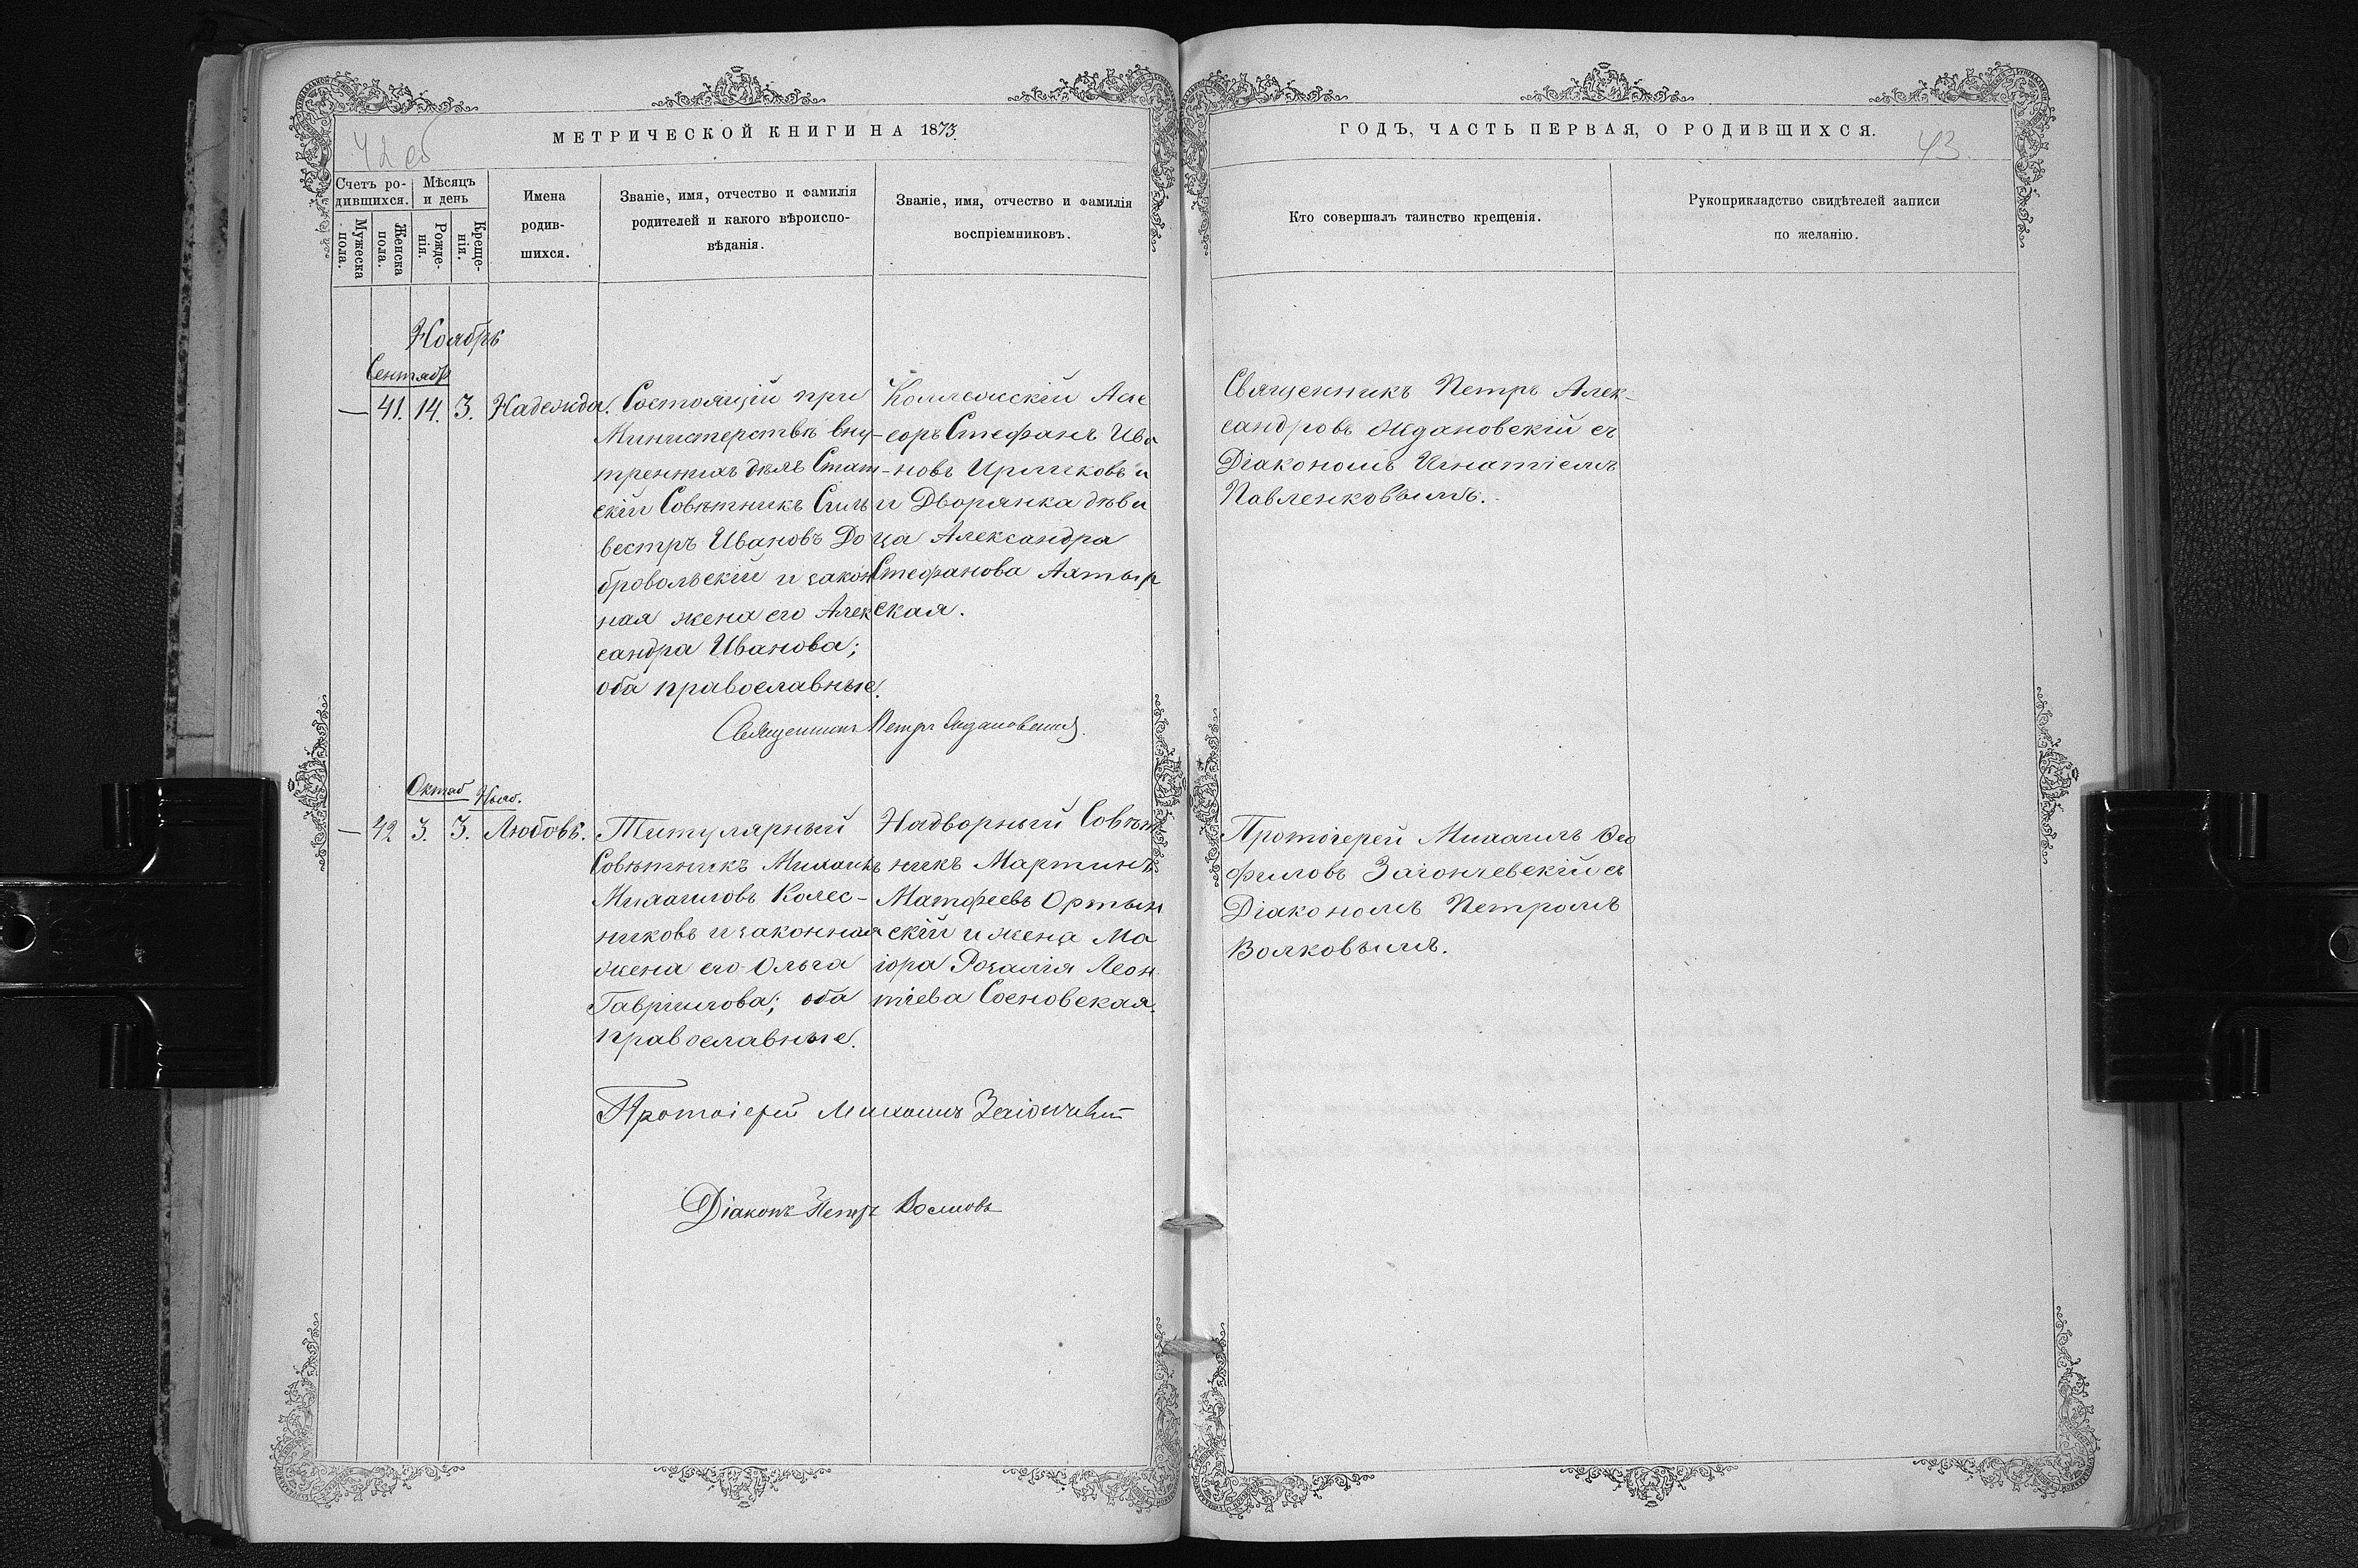 42 об
МЕТРИЧЕСКОЙ КНИГИ НА 1873.
Счетъ ро-
дившихся.
Мужеска
пола.
Женска
пола.
Мѣсяцъ
и день
Рожде-
нія.
Креще-
нія.
Имена
родив-
шихся.
Званіе, имя, отчество и фамилія
родителей и какого вѣроиспо-
вѣданія.
Званіе, имя, отчество и фамилія
воспріемниковъ.
Ноябрь
Сентябр
— 41. 14. 3. Надежда.
Состоящій при
Министерствѣ вну-
треннихъ дѣлъ Стат-
скій Совѣтникъ Силь
вестръ Ивановъ До
бровольскій и закон
ная жена его Алек
сандра Иванова;
оба православные.
Коллежскій Асе
соръ Стефанъ Ива
новъ и
и Дворянка дѣви
ца Александра
Стефанова Ахтыр
ская.
Священникъ Петръ Ждановскій.
Октяб Нояб.
— 42 3. 3. Любовь.
Титулярный
Совѣтникъ Михаилъ
Михаиловъ Колес-
никовъ и законная
жена его Ольга
Гавріилова; оба
православные.
Надворный Совѣт
никъ Мартинъ
Матфеевъ Ортын
скій и жена Ма
іора Розалія Леон
тіева Сосновская.
Протоіерей Михаилъ
Діаконъ Петръ Волковъ
ГОДЪ, ЧАСТЬ ПЕРВАЯ, О РОДИВШИХСЯ.
43
Кто совершалъ таинство крещенія.
Рукоприкладство свидѣтелей записи
по желанію.
Священникъ Петръ Алек-
сандровъ Ждановскій съ
Діакономъ Игнатіемъ
Павленковымъ.
Протоіерей Михаилъ Ѳео
филовъ Загончевскій съ
Діакономъ Петромъ
Волковымъ.